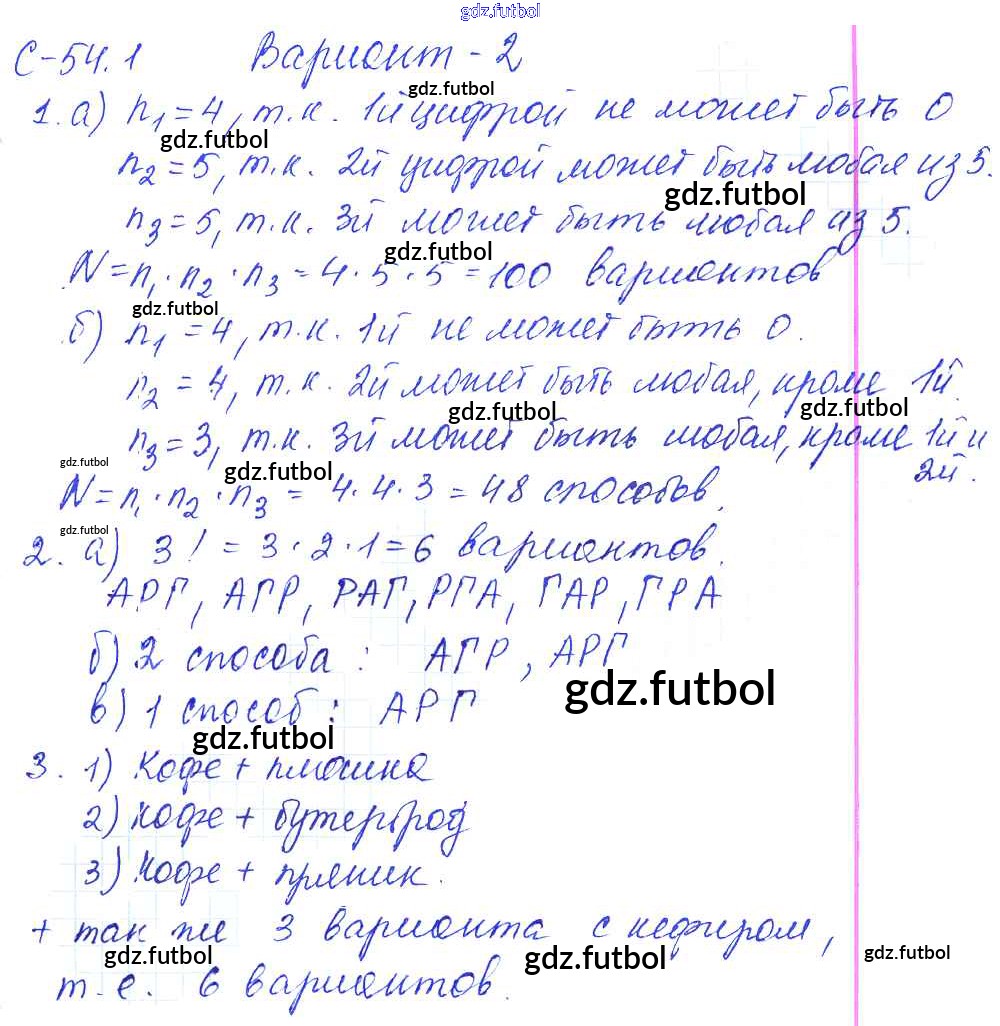 gdz.futbol
С-54.1 Вариант-2
gdz.futbol
1. а) n₁=4, т.к. 1й цифрой не может быть 0
gdz.futbol
n₂=5, т.к. 2й цифрой может быть любая из 5.
gdz.futbol
n₃=5, т.к. 3й может быть любая из 5.
gdz.futbol
N=n₁·n₂·n₃=4·5·5=100 вариантов
gdz.futbol
б) n₁=4, т.к. 1й не может быть 0.
n₂=4, т.к. 2й может быть любая, кроме 1й.
gdz.futbol gdz.futbol
n₃=3, т.к. 3й может быть любая, кроме 1й и
gdz.futbol gdz.futbol 2й.
N=n₁·n₂·n₃=4·4·3=48 способов.
gdz.futbol
2. а) 3!=3·2·1=6 вариантов.
АРГ, АГР, РАГ, РГА, ГАР, ГРА
б) 2 способа: АГР, АРГ
gdz.futbol
в) 1 способ: АРГ
gdz.futbol
3. 1) Кофе + плюшка
2) кофе + бутерброд
3) Кофе + пряник.
+ так же 3 варианта с кефиром,
gdz.futbol gdz.futbol gdz.futbol
т.е. 6 вариантов.